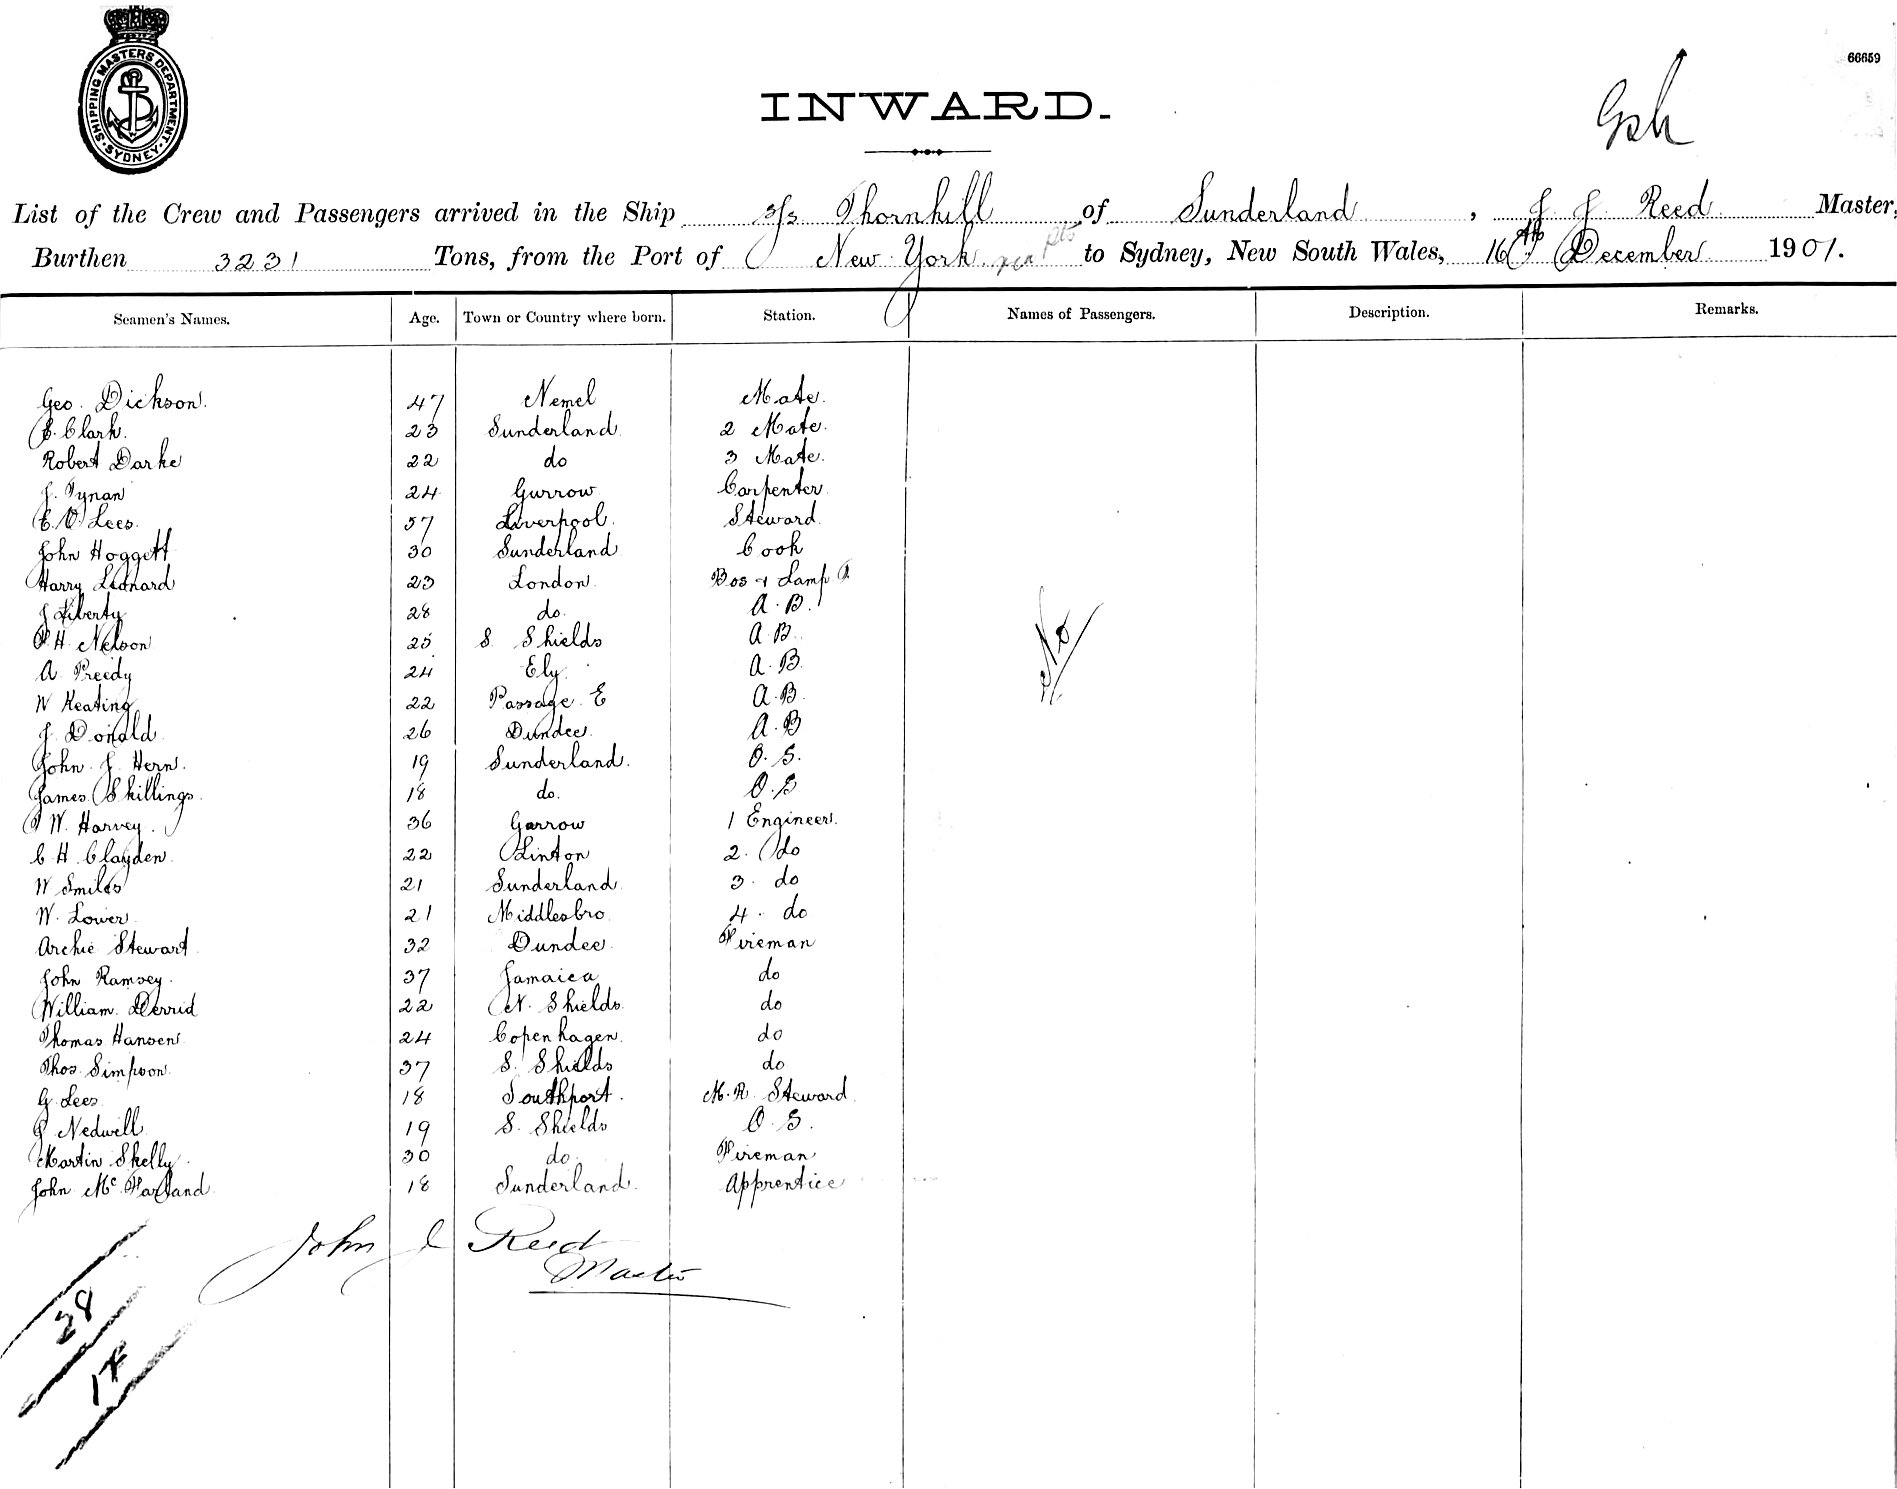 SHIPPING MASTERS DEPARTMENT. SYDNEY.
66659
INWARD.
List of the Crew and Passengers arrived in the Ship s/s Thornhill of Sunderland, J J Reed Master,
Burthen 3231 Tons, from the Port of New York via pts to Sydney, New South Wales, 16th December 1901.
Seamen's Names. Age. Town or Country where born. Station. Names of Passengers. Description. Remarks.
Geo. Dickson. 47 Nemel Mate.
E. Clark. 23 Sunderland 2 Mate.
Robert Darke 22 do 3 Mate.
J. Tynan 24 Gurrow Carpenter
E. O. Lees. 57 Liverpool. Steward.
John Hoggett 30 Sunderland Cook
Harry Leonard 23 London. Bos & Lamp T
J Liberty 28 do. A. B.
P. H. Nelson 25 S Shields A. B.
A Preedy 24 Ely. A. B.
W Keating 22 Passage E A. B.
J. Donald 26 Dundee. A. B
John J. Hern. 19 Sunderland. O. S.
James Skillings. 18 do. O. S
T W. Harvey. 36 Garrow 1 Engineer.
C H Clayden. 22 Linton 2. do
W Smiles 21 Sunderland 3. do
W. Lower 21 Middlesbro 4. do
Archie Stewart 32 Dundee. Fireman
John Ramsey. 37 Jamaica do
William Derrid 22 N. Shields. do
Thomas Hansen 24 Copenhagen. do
Thos. Simpson. 37 S. Shields do
G. Lees 18 Southport. M. R. Steward.
J Nedwill 19 S. Shields O. S.
Martin Skelly 30 do. Fireman
John Mc Farland 18 Sunderland. Apprentice
No
John J Reed
Master
28